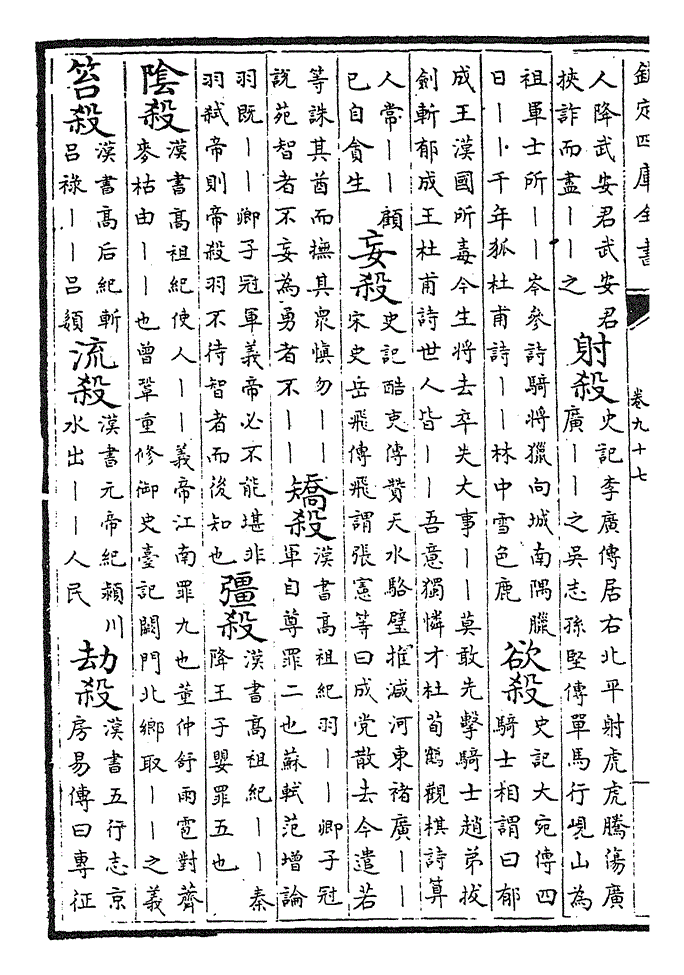 欽定四庫全書
卷九十七
人降武安君武安君
挾詐而盡丨丨之
射殺
史記李廣傳居右北平射虎虎騰傷廣
廣丨丨之吳志孫堅傳單馬行峴山為
祖軍士所丨丨岑參詩騎將獵向城南隅臘
日丨丨千年狐杜甫詩丨丨林中雪色鹿
欲殺
史記大宛傳四
騎士相謂曰郁
成王漢國所毒今生將去卒失大事丨丨莫敢先擊騎士趙弟拔
劍斬郁成王杜甫詩世人皆丨丨吾意獨憐才杜荀鶴觀棋詩算
人常丨丨顧
已自貪生
妄殺
史記酷吏傳贊天水駱璧推減河東褚廣丨丨
宋史岳飛傳飛謂張憲等曰成党散去今遣若
等誅其酋而撫其衆慎勿丨丨
說苑智者不妄為勇者不丨丨
矯殺
漢書高祖紀羽丨丨卿子冠
軍自尊罪二也蘇軾范增論
羽既丨丨卿子冠軍義帝必不能堪非
羽弒帝則帝殺羽不待智者而後知也
彊殺
漢書高祖紀丨丨秦
降王子嬰罪五也
陰殺
漢書高祖紀使人丨丨義帝江南罪九也董仲舒雨雹對薺
麥枯由丨丨也曾鞏重修御史臺記闕門北鄉取丨丨之義
笞殺
漢書高后紀斬
呂祿丨丨呂嬃
流殺
漢書元帝紀潁川
水出丨丨人民
劫殺
漢書五行志京
房易傳曰專征